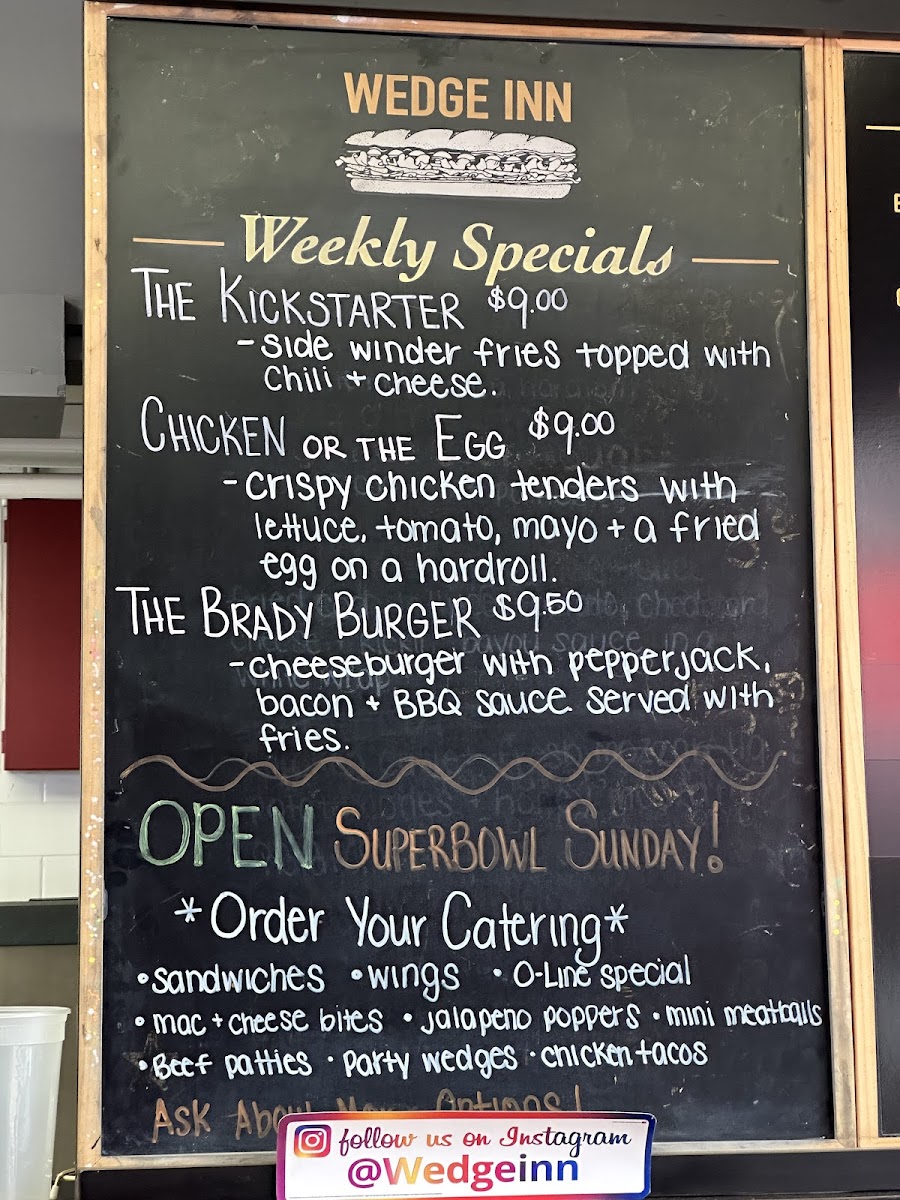 WEDGE INN
Weekly Specials
THE KICKSTARTER $9.00
- side winder fries topped with
chili + cheese.
CHICKEN OR THE EGG $9.00
- crispy chicken tenders with
lettuce, tomato, mayo + a fried
egg on a hardroll.
THE BRADY BURGER $9.50
- cheeseburger with pepperjack,
bacon + BBQ sauce. Served with
fries.
OPEN SUPERBOWL SUNDAY!
*Order Your Catering*
• sandwiches • wings • O-Line special
• mac + cheese bites • jalapeno poppers • mini meatballs
• Beef patties • party wedges • chicken tacos
ASK About More Options!
follow us on Instagram
@Wedgeinn